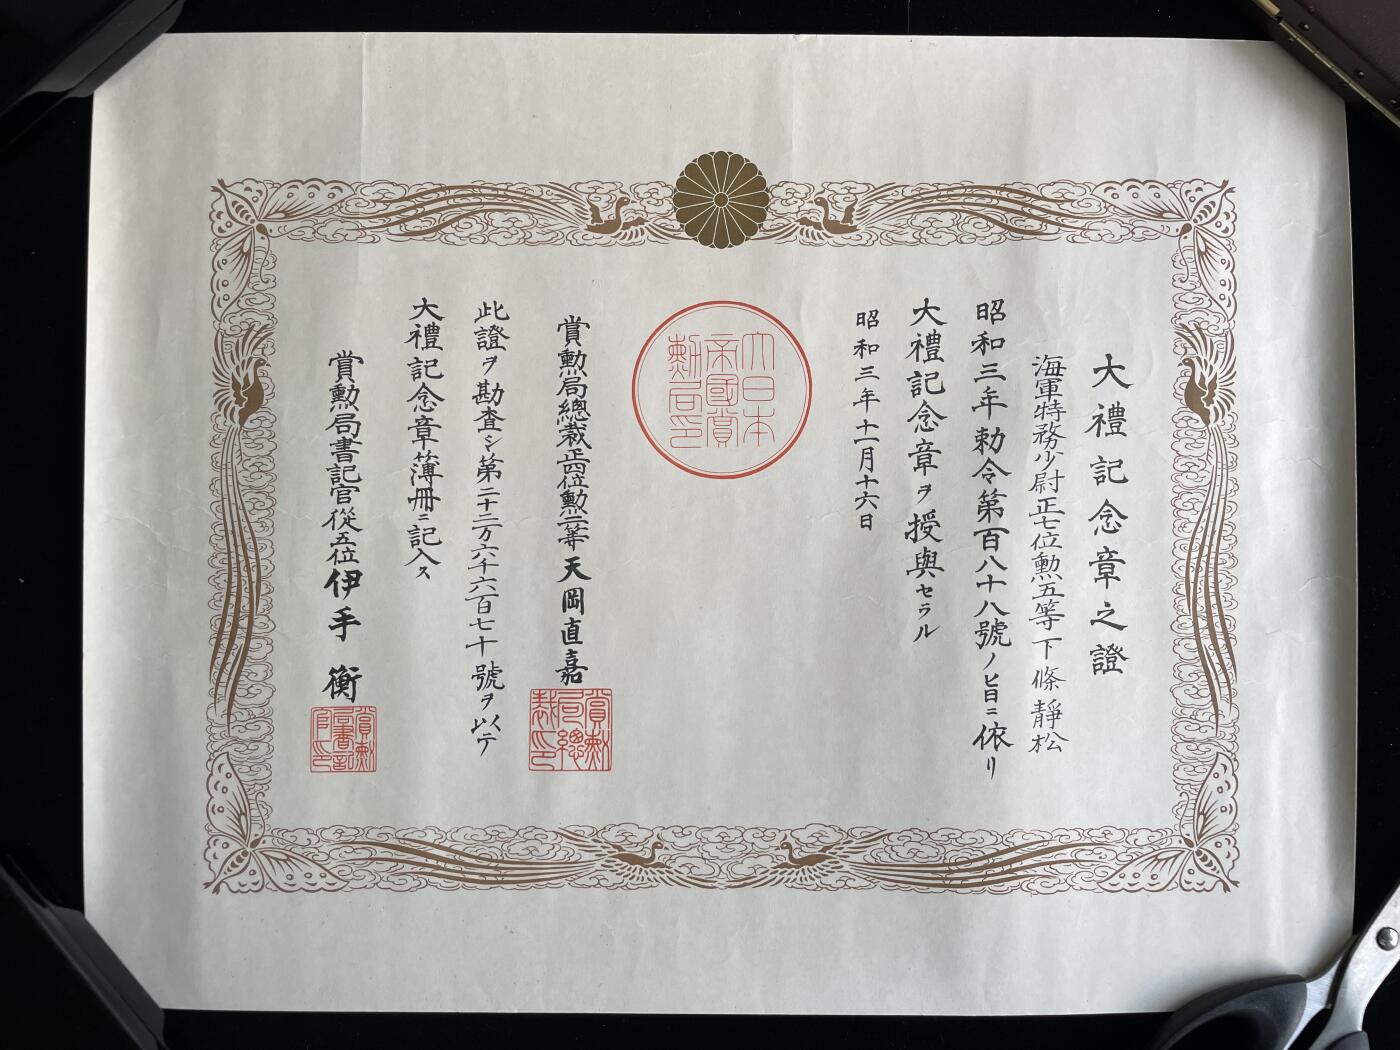 大禮記念章之證
海軍特務少尉正七位勲五等下條靜松
昭和三年勅令第百八十八號ノ旨ニ依リ
大禮記念章ヲ授與セラル
昭和三年十一月十六日
大日本
帝國賞
勲局印
賞勲局總裁正四位勲二等天岡直嘉
賞勲
局總
裁印
此證ヲ勘査シ第二十二万六千六百七十號ヲ以テ
大禮記念章簿冊ニ記入ス
賞勲局書記官從五位伊手衡
賞勲
局書記
官印